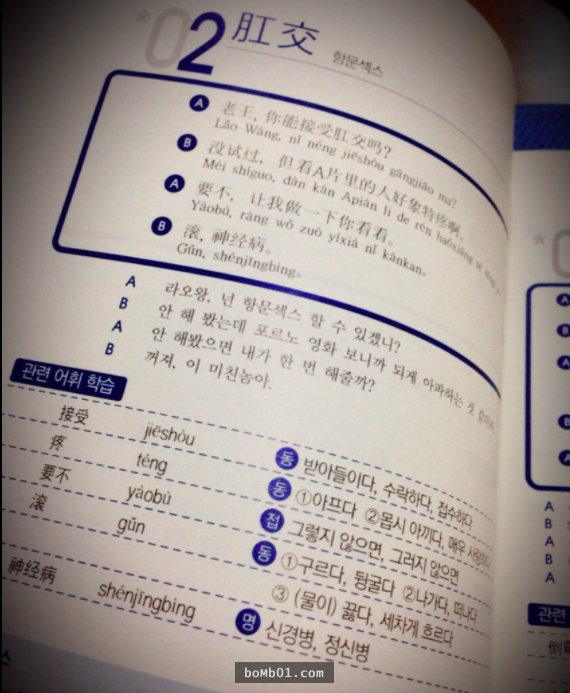 *02 肛交 항문섹스
A 老王, 你能接受肛交吗?
Lǎo Wáng, nǐ néng jiēshòu gāngjiāo ma?
B 没试过, 但看A片里的人好象特疼啊。
Méi shìguo, dàn kàn Apiàn li de rén hǎoxiàng tè
A 要不, 让我做一下你看看。
Yàobù, ràng wǒ zuó yíxià nǐ kànkan.
B 滚, 神经病。
Gǔn, shénjīngbìng。
A 라오왕, 넌 항문섹스 할 수 있겠니?
B 안 해 봤는데 포르노 영화 보니까 되게 아파하는 것 같아
A 안 해봤으면 내가 한 번 해줄까?
B 꺼져, 이 미친놈아.
관련 어휘 학습
接受 jiēshòu 동 받아들이다, 수락하다, 접수하다
疼 téng 동 ①아프다 ②몹시 아끼다, 매우
要不 yàobù 접 그렇지 않으면, 그러지 않으면
滚 gǔn 동 ①구르다, 뒹굴다 ②나가다, 떠나다
③ (물이) 끓다, 세차게 흐르다
神经病 shénjīngbìng 명 신경병, 정신병
스
*0
A
B
A
B
A
A
B
A
B
A
관련
倒
boMb01.com